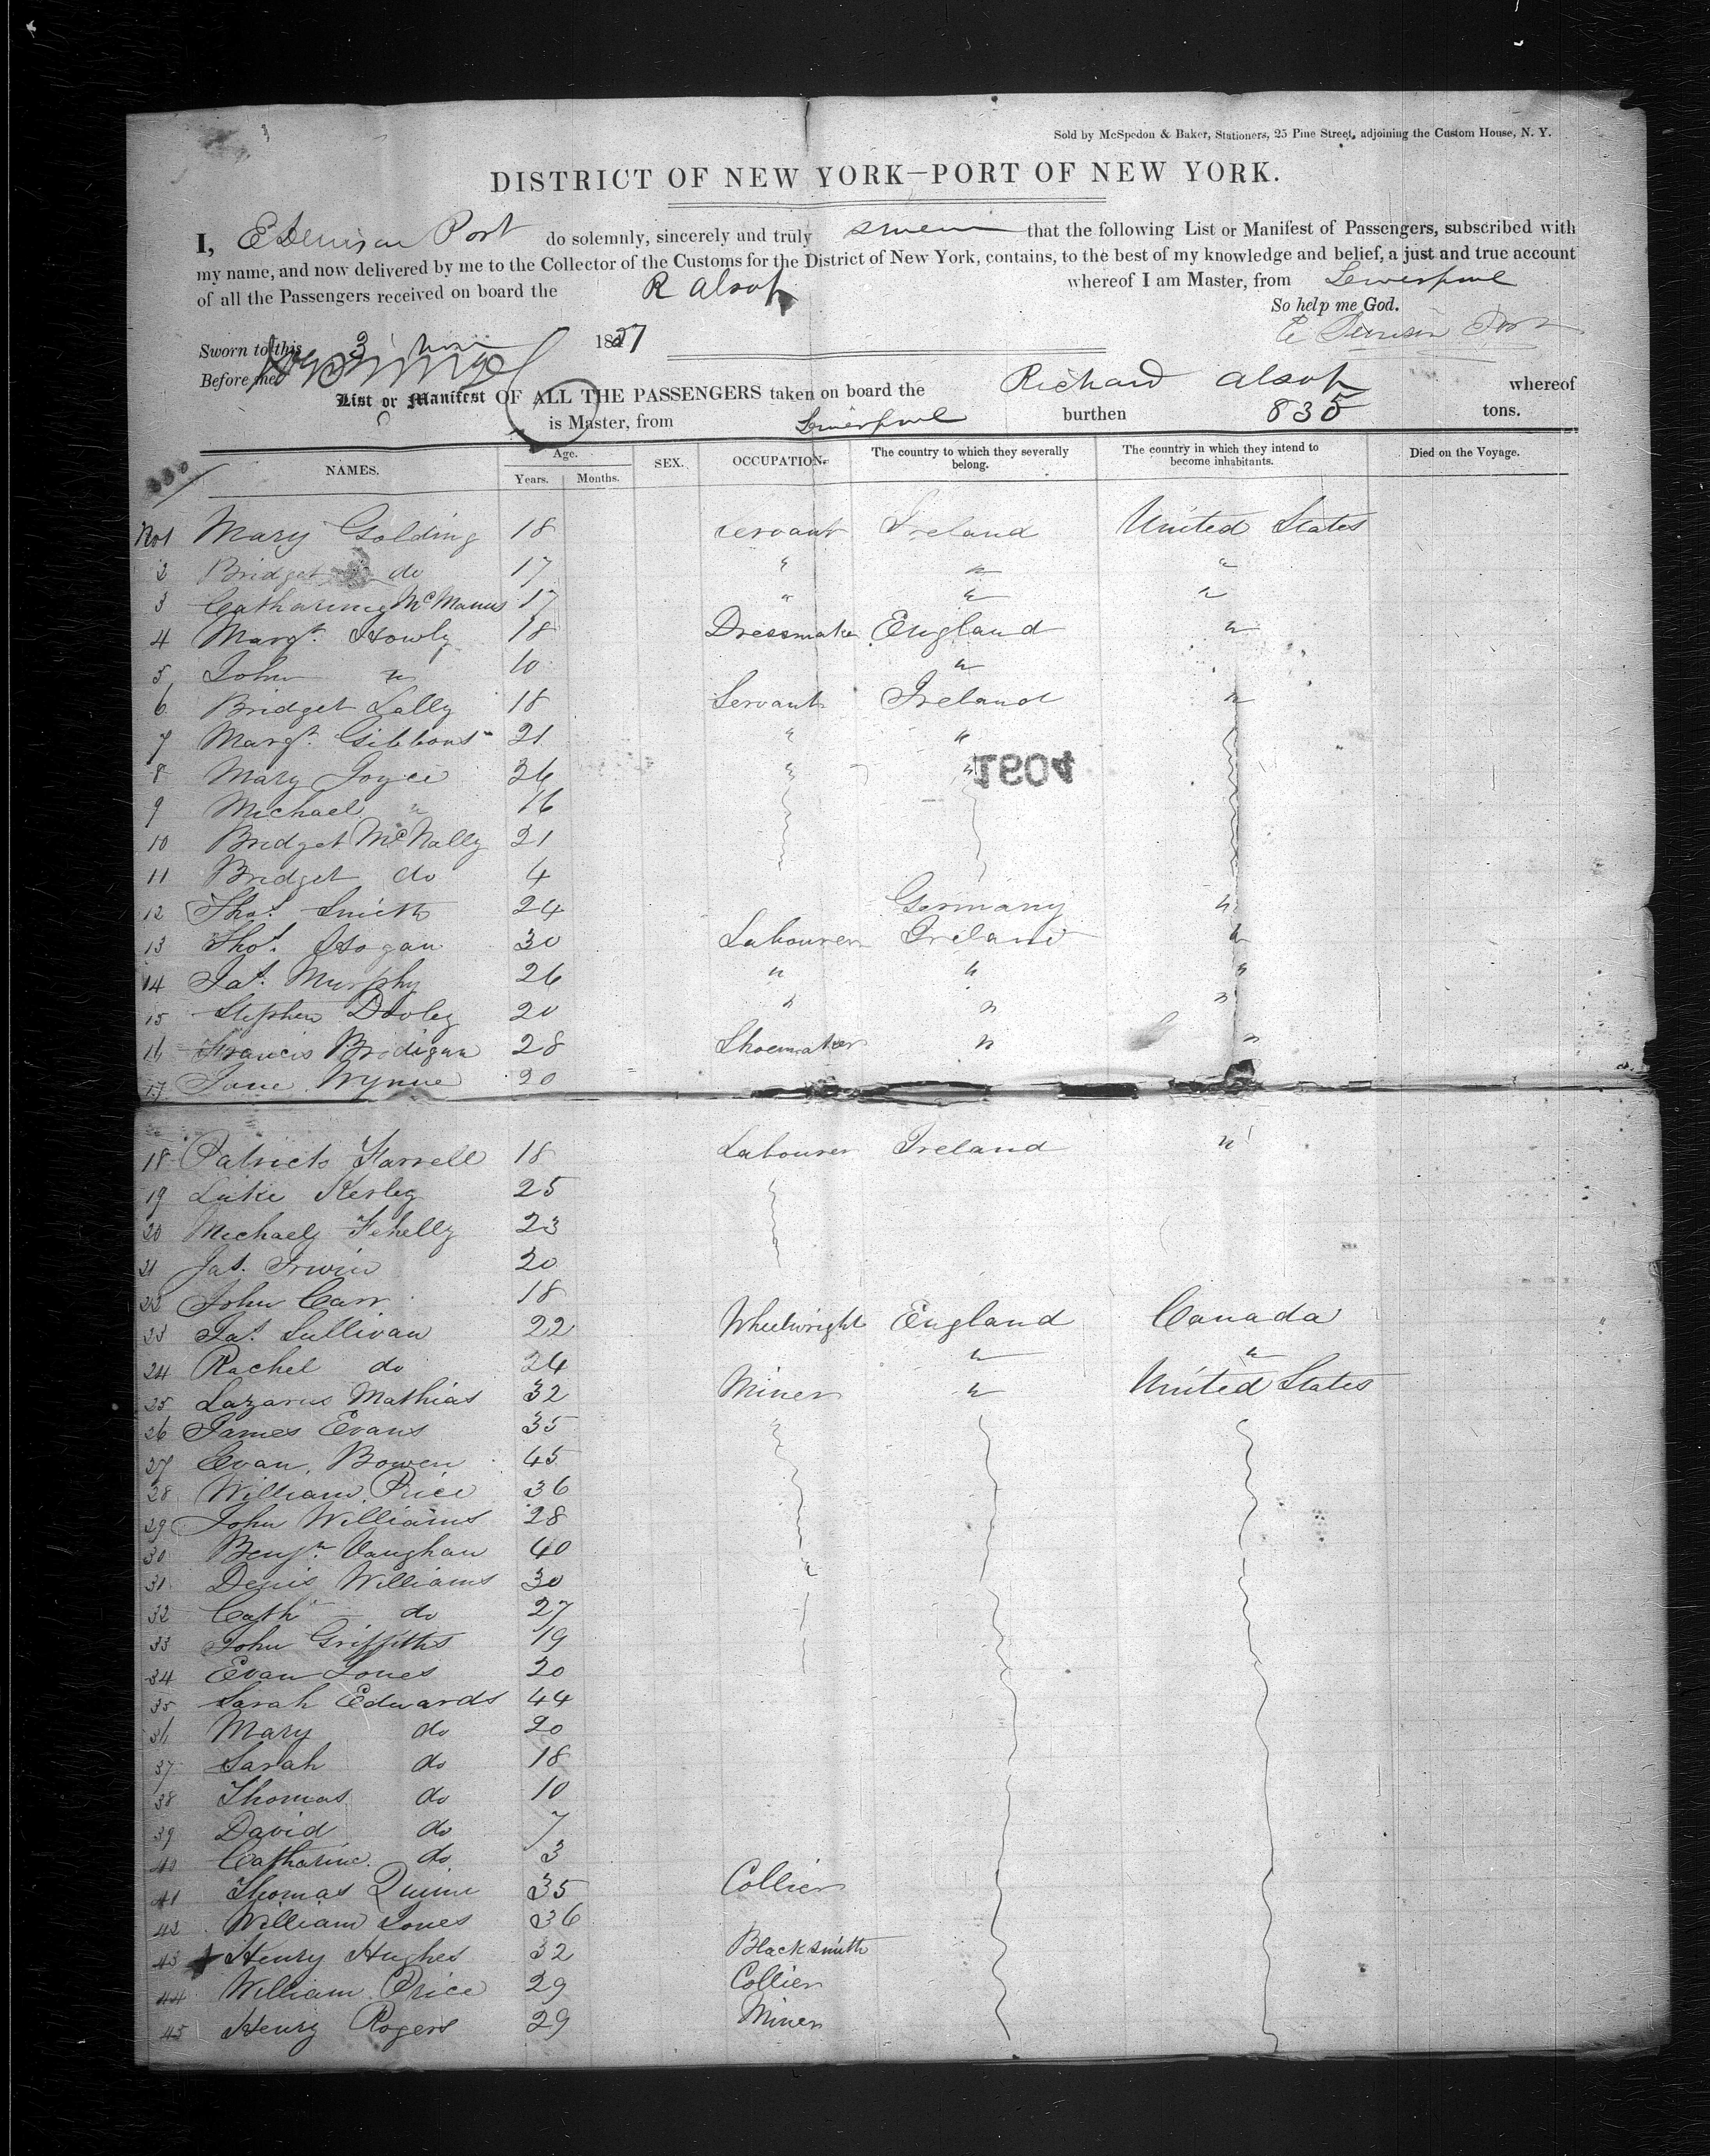 Sold by McSpedon & Baker, Stationers, 25 Pine Street, adjoining the Custom House, N. Y.
DISTRICT OF NEW YORK—PORT OF NEW YORK.
I, E Denison Post do solemnly, sincerely and truly swear that the following List or Manifest of Passengers, subscribed with
my name, and now delivered by me to the Collector of the Customs for the District of New York, contains, to the best of my knowledge and belief, a just and true account
of all the Passengers received on board the R Alsop whereof I am Master, from Liverpool
So help me God.
Sworn to this 3 18
Before me
List or Manifest OF ALL THE PASSENGERS taken on board the Richard Alsop whereof
is Master, from Liverpool burthen 835 tons.
NAMES. Age. Years. Months. SEX. OCCUPATION. The country to which they severally belong. The country in which they intend to become inhabitants. Died on the Voyage.
No1 Mary Golding 18 servant Ireland United States
2 Bridget do 17 " " "
3 Catharine McManus 17 " " "
4 Margt. Howly 18 Dressmaker England "
5 John " 10 "
6 Bridget Lally 18 Servant Ireland "
7 Margt. Gibbons 21 " "
8 Mary Joyce 36 " "
1804
9 Michael " 16
10 Bridget McNally 21
11 Bridget do 4
12 Thos. Smith 24 Germany "
13 Thos. Hogan 30 Labourer Ireland "
14 Jas. Murphy 26 " " "
15 Stephen Dooley 20 " " "
16 Francis Brodigan 28 Shoemaker " "
17 Jane Wynne 20
18 Patrick Farrell 18 Labourer Ireland "
19 Luke 25
20 Michael 23
21 Jas. Irwin 20
22 John Carr 18
23 Jas. Sullivan 22 Wheelwright England Canada
24 Rachel do 24 " "
25 Lazarus Mathias 32 Miner " United States
26 James Evans 35
27 Evan Bowen 45
28 William Price 36
29 John Williams 28
30 Benjn. Vaughan 40
31 Denis Williams 30 "
32 Cath do 27
33 John Griffiths 19
34 Evan Jones 20
35 Sarah Edwards 44
36 Mary do 20
37 Sarah do 18
38 Thomas do 10
39 David do 7
40 Catharine do 3
41 Thomas Quinn 35 Collier
42 William Jones 36
43 Henry Hughes 32 Blacksmith
44 William Price 29 Collier
45 Henry Rogers 29 Miner